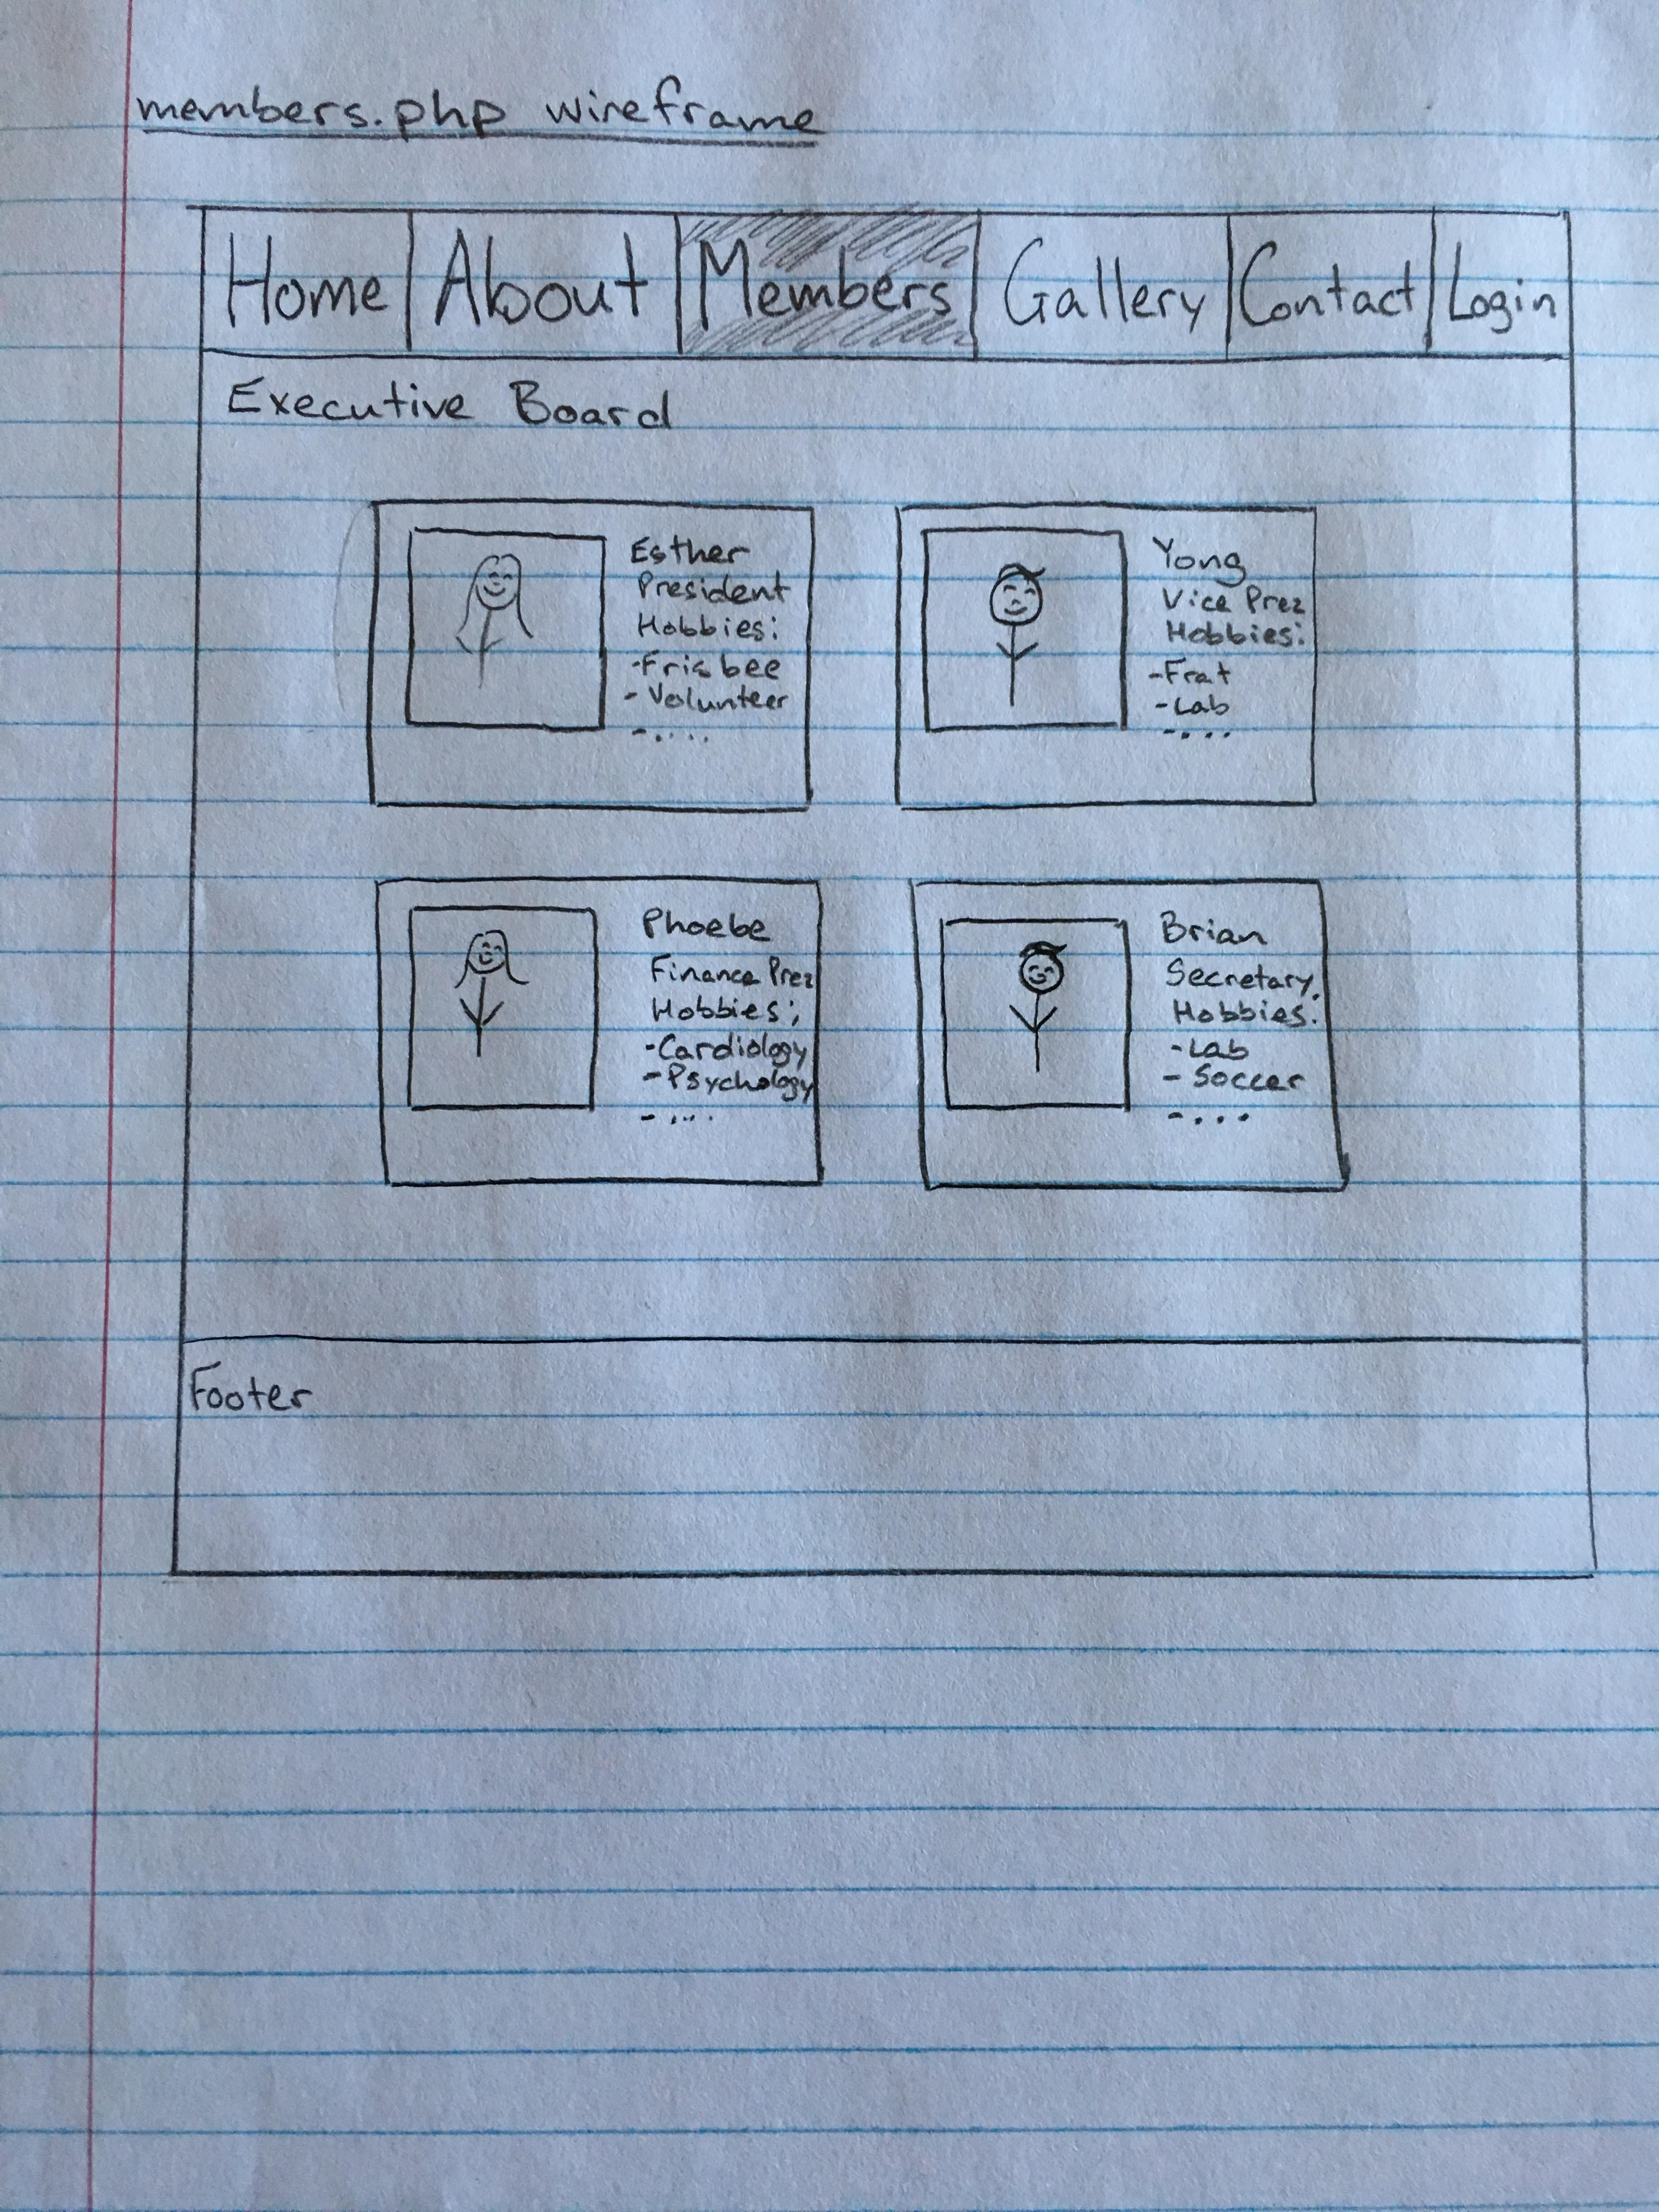 members.php wireframe
Home About Members Gallery Contact Login
Executive Board
Esther
President
Hobbies:
-Frisbee
- Volunteer
-....
Yong
Vice Prez
Hobbies:
-Frat
-Lab
-...
Phoebe
Finance Prez
Hobbies;
-Cardiology
-Psychology
-....
Brian
Secretary.
Hobbies:
-Lab
- Soccer
-...
Footer